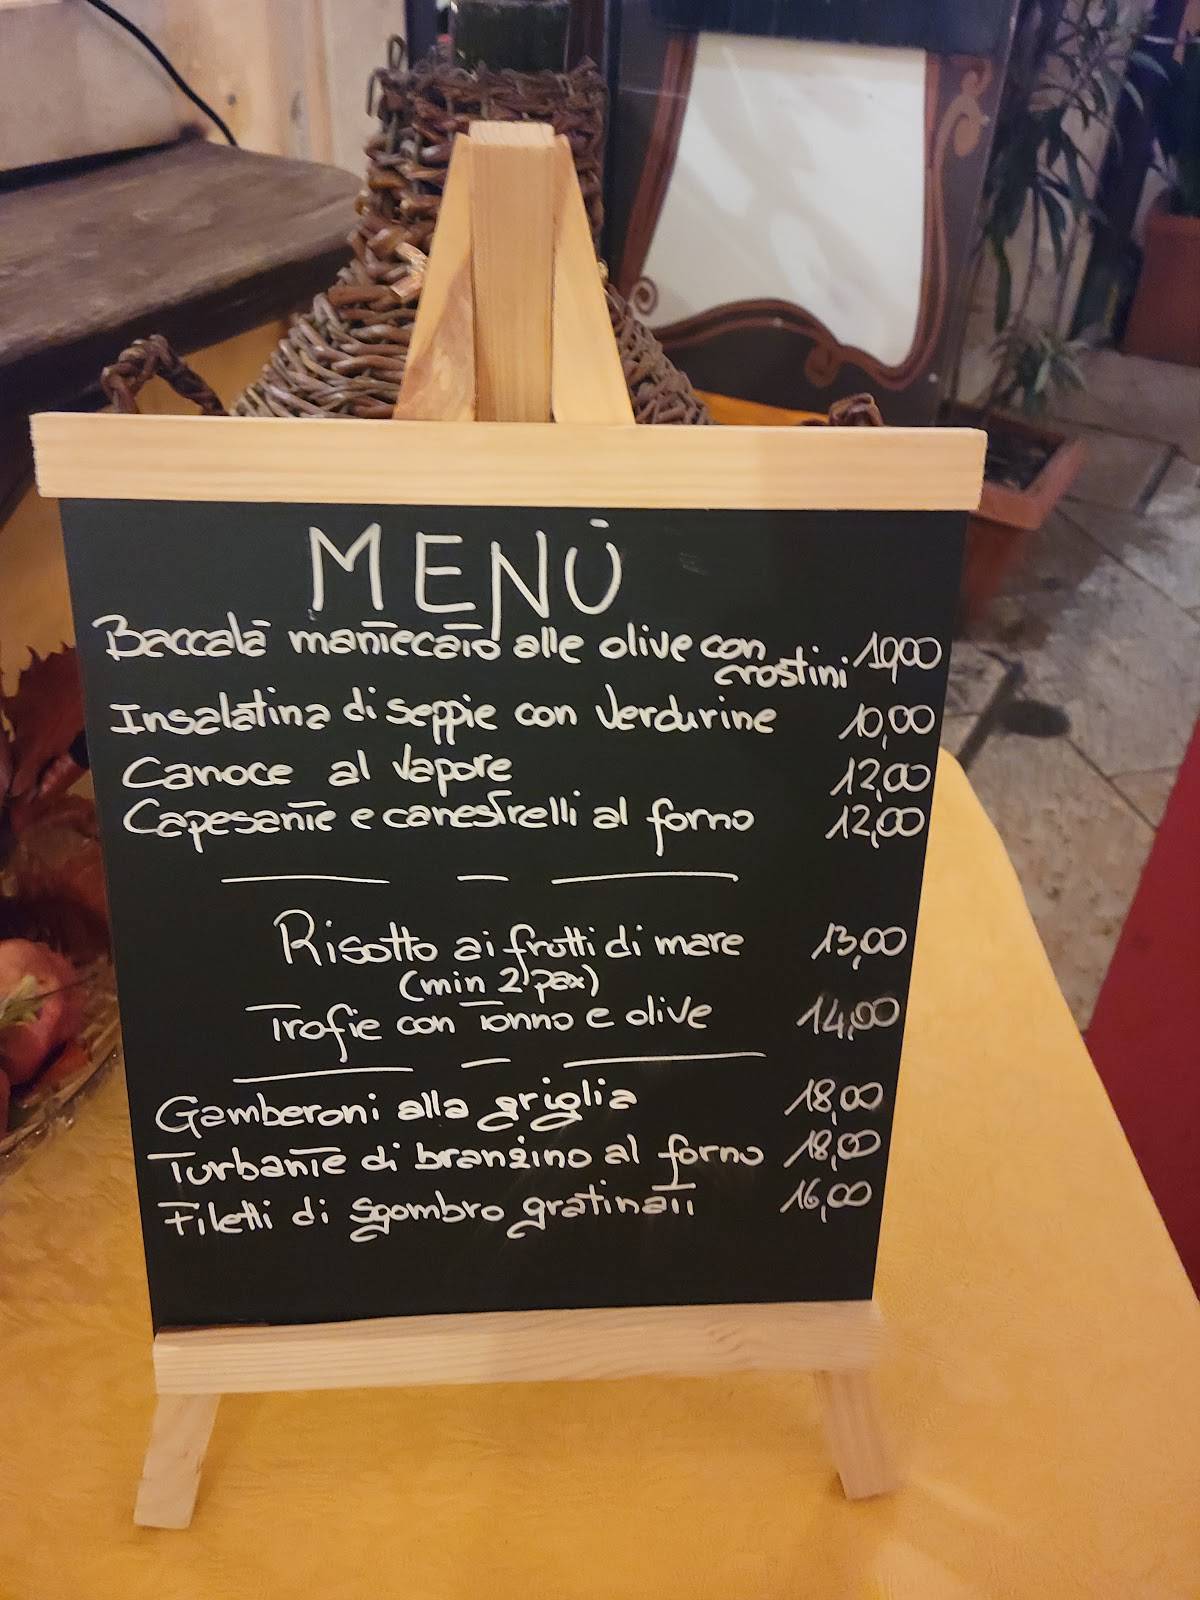 MENÙ
Baccalà mantecato alle olive con crostini 10,00
Insalatina di seppie con verdurine 10,00
Canoce al vapore 12,00
Capesante e canestrelli al forno 12,00
Risotto ai frutti di mare 13,00
(min 2 pax)
Trofie con tonno e olive 14,00
Gamberoni alla griglia 18,00
Turbante di branzino al forno 18,00
Filetti di sgombro gratinati 16,00